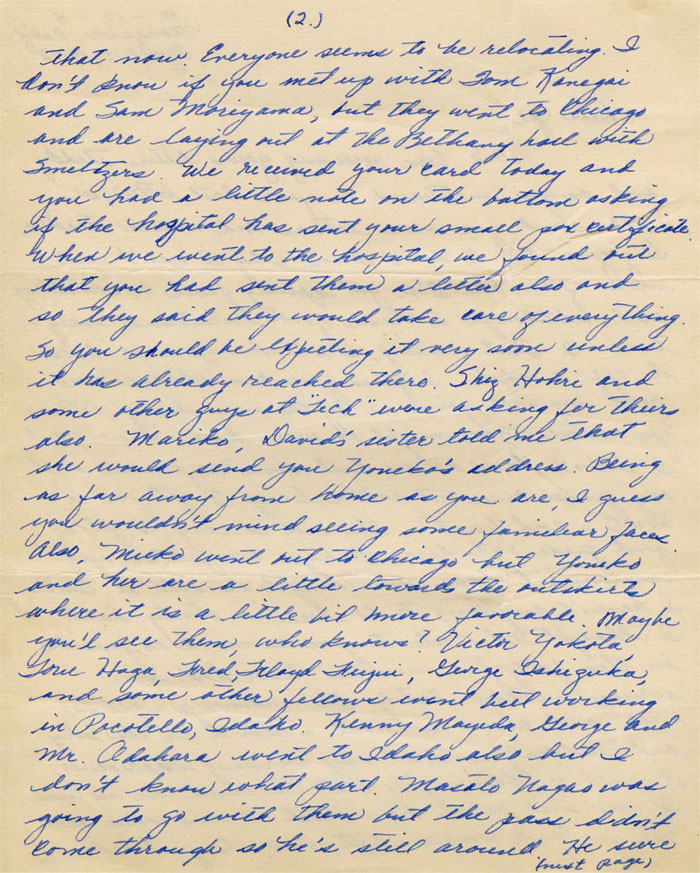 (2.)
that now. Everyone seems to be relocating. I
don't know if you met up with Tom Kanegai
and Sam Moriyama, but they went to Chicago
and are laying out at the Bethany hosl with
Smeltzers. We received your card today and
you had a little note on the bottom asking
if the hospital has sent your small pox certificate.
When we went to the hospital, we found out
that you had sent them a letter also and
so they said they would take care of everything.
So you should be expecting it very soon unless
it has already reached there. Shiz Hohri and
some other guys at "Tech" were asking for theirs
also. Mariko, David's sister told me that
she would send you Yoneko's address. Being
as far away from home as you are, I guess
you wouldn't mind seeing some familiar faces.
Also, Mieko went out to Chicago but Yoneko
and her are a little towards the outskirts
where it is a little bit more favorable. Maybe
you'll see them, who knows? Victor Yokota,
Toru Haga, Fred, Floyd Fujui, George Ishizuka,
and some other fellows went beet working
in Pocotello, Idaho. Kenny Mayeda, George and
Mr. Adahara went to Idaho also but I
don't know what part. Masato Nagao was
going to go with them but the pass didn't
come through so he's still around. He sure
(next page)